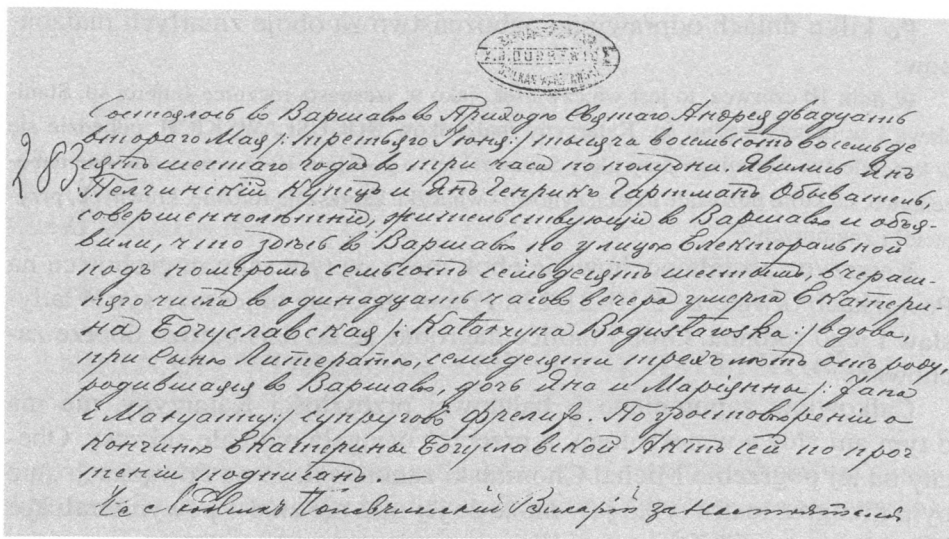 283
Состоялось в Варшаве в Приходе Святаго Андрея двадцать
втораго Мая /: третьяго Іюня :/ тысяча восемьсотъ восемьде
сятъ шестаго года во три часа по полудни. Явились Янъ
Пелчинскій Купецъ и Янъ Генрикъ Гартманъ Обыватель,
совершеннолѣтніе, жительствующіе в Варшавѣ и объя-
вили, что здѣсь в Варшавѣ по улицѣ Електоральной
подъ номеромъ семьсотъ семьдесятъ шестымъ, вчераш-
няго числа в одинадцать часовъ вечера умерла Екатери-
на Богуславская /: Katarzyna Bogusławska :/ вдова
при Сынѣ Литератѣ, семидесяти трехъ лѣтъ отъ роду,
родившаяся в Варшавѣ, дочь Яна и Маріянны /: Jana
i Maryanny :/ супруговъ Фрелихъ. По удостоверении о
кончинѣ Екатерины Богуславской Актъ сей по проч
теніи подписанъ
Викарій за Настоятеля